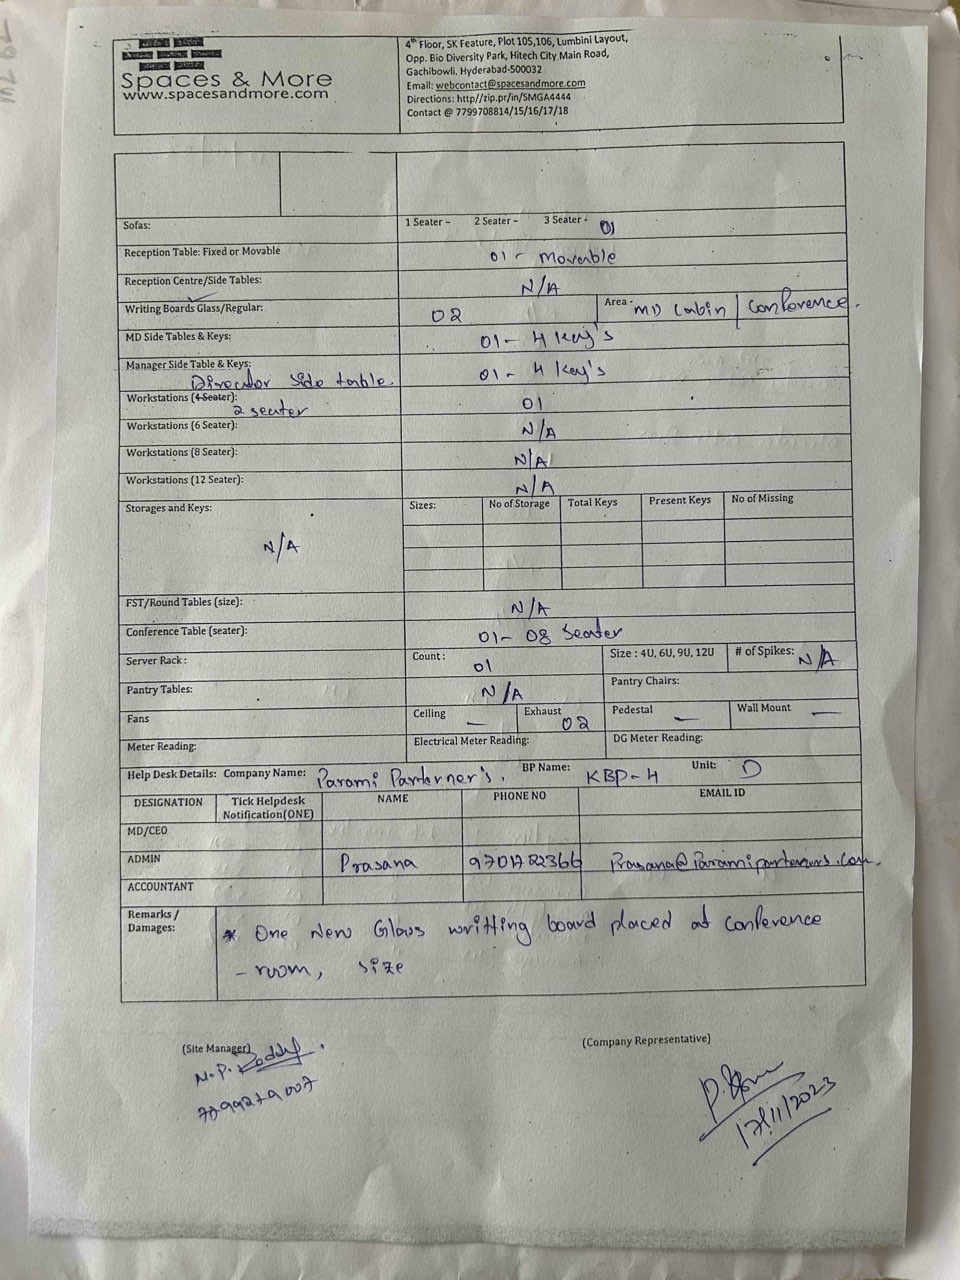 Spaces & More
www.spacesandmore.com
4th Floor, SK Feature, Plot 105,106, Lumbini Layout,
Opp. Bio Diversity Park, Hitech City Main Road,
Gachibowli, Hyderabad-500032
Email: webcontact@spacesandmore.com
Directions: http//zip.pr/in/SMGA4444
Contact @ 7799708814/15/16/17/18
Sofas: 1 Seater – 2 Seater – 3 Seater - 01
Reception Table: Fixed or Movable 01 - Movable
Reception Centre/Side Tables: N/A
Writing Boards Glass/Regular: 02 Area - MD Cabin / Conference.
MD Side Tables & Keys: 01 - 4 Key's
Manager Side Table & Keys: 01 - 4 Key's
Director Side table.
Workstations (4 Seater): 01
2 seater
Workstations (6 Seater): N/A
Workstations (8 Seater): N/A
Workstations (12 Seater): N/A
Storages and Keys: Sizes: No of Storage Total Keys Present Keys No of Missing
N/A
FST/Round Tables (size): N/A
Conference Table (seater): 01- 08 Seater
Server Rack : Count : 01 Size : 4U, 6U, 9U, 12U # of Spikes: N/A
Pantry Tables: N/A Pantry Chairs:
Fans Ceiling — Exhaust 02 Pedestal — Wall Mount —
Meter Reading: Electrical Meter Reading: DG Meter Reading:
Help Desk Details: Company Name: Parami Parterner's. BP Name: KBP-4 Unit: D
DESIGNATION Tick Helpdesk Notification(ONE) NAME PHONE NO EMAIL ID
MD/CEO
ADMIN Prasana 9701722366 Prasana@Paramiparteners.com.
ACCOUNTANT
Remarks / Damages:
* One New Glass writting board placed at Conference
- room, size
(Site Manager) (Company Representative)
M.P. Reddy.
7799279007
17/11/2023